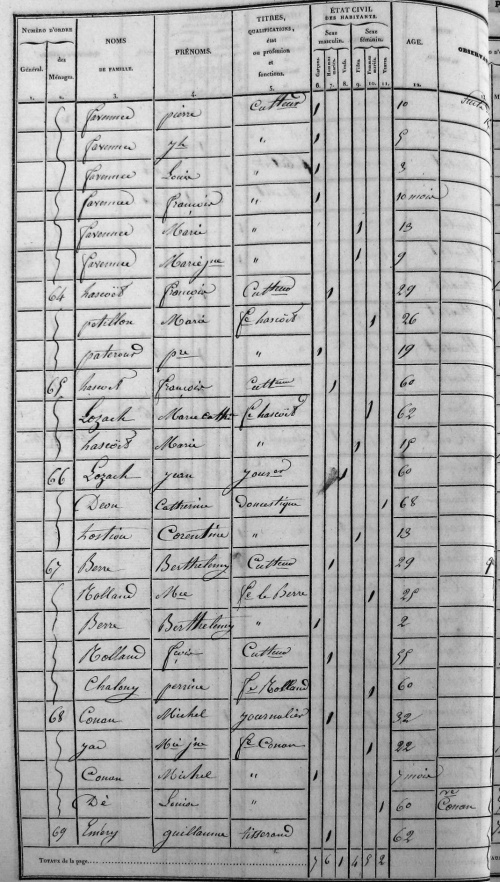 NUMÉRO D'ORDRE
Général.
des Ménages.
NOMS DE FAMILLE.
PRÉNOMS.
TITRES, QUALIFICATIONS, état ou profession et fonctions.
ÉTAT CIVIL DES HABITANTS.
Sexe masculin.
Sexe féminin.
Garçons.
Hommes mariés.
Veufs.
Filles.
Femmes mariées.
Veuves.
AGE.
OBSERVA
1. 2. 3. 4. 5. 6. 7. 8. 9. 10. 11. 12.
favennec pierre Cultteur 1 10
favennec yh " 1 5
favennec Louis " 1 3
favennec françois " 1 10 mois
favennec Marie " 1 13
favennec Marie jne " 1 9
64 hascoët françois Cultteur 1 29
petillon Marie fe hascoët 1 26
pre " 1 19
65 hascoët françois Cultteur 1 60
Lozach Marie Cathe fe hascoët 1 62
hascoët Marie " 1 15
66 Lozach jean jourer 1 60
Deon Catherine Domestique 1 68
hostiou Corentine " 1 13
67 Berre Berthelemy Cultteur 1 29
Rolland Mie fe le Berre 1 25
Berre Berthelemy " 1 2
Rolland Cultteur 1 55
Chalony perrine fe Rolland 1 60
68 Conan Michel journalier 1 32
Mie jne fe Conan 1 22
Conan Michel " 1 7 mois
Dé Louise " 1 60 ve Conan
69 Emery guillaume tisserand 1 62
TOTAUX de la page 7 6 1 4 5 2